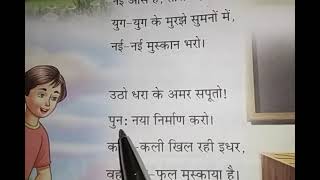 युग-युग के मुरझे सुमनों में,
नई-नई मुस्कान भरो।
उठो धरा के अमर सपूतो!
पुनः नया निर्माण करो।
कली खिल रही इधर,
फूल मुस्काया है।